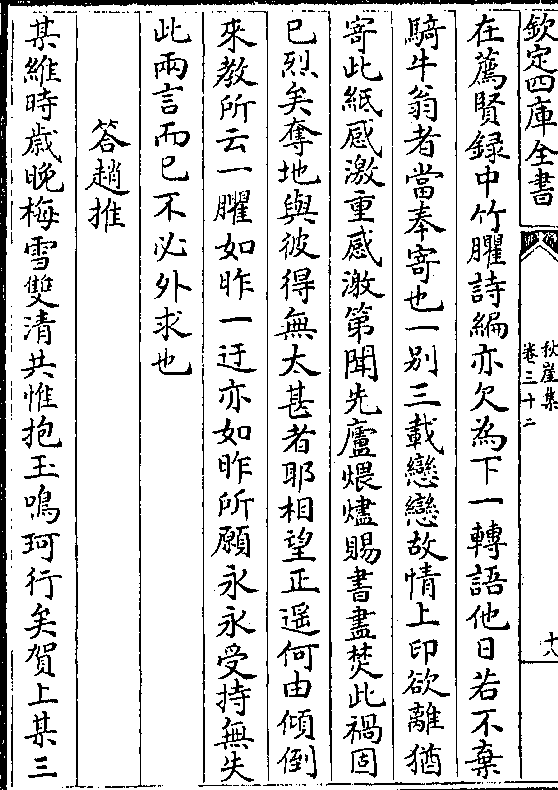 欽定四庫全書
秋崖集
卷三十二
十八
在薦賢録中竹臞詩編亦欠為下一轉語他日若不棄
騎牛翁者當奉寄也一别三載戀戀故情上印欲離猶
寄此紙感激重感激第聞先廬煨燼賜書盡焚此禍固
已烈矣奪地與彼得無太甚者耶相望正遥何由傾倒
來教所云一臞如昨一迂亦如昨所願永永受持無失
此兩言而已不必外求也
答趙推
某維時歲晚梅雪雙清共惟抱玉鳴珂行矣賀上某三